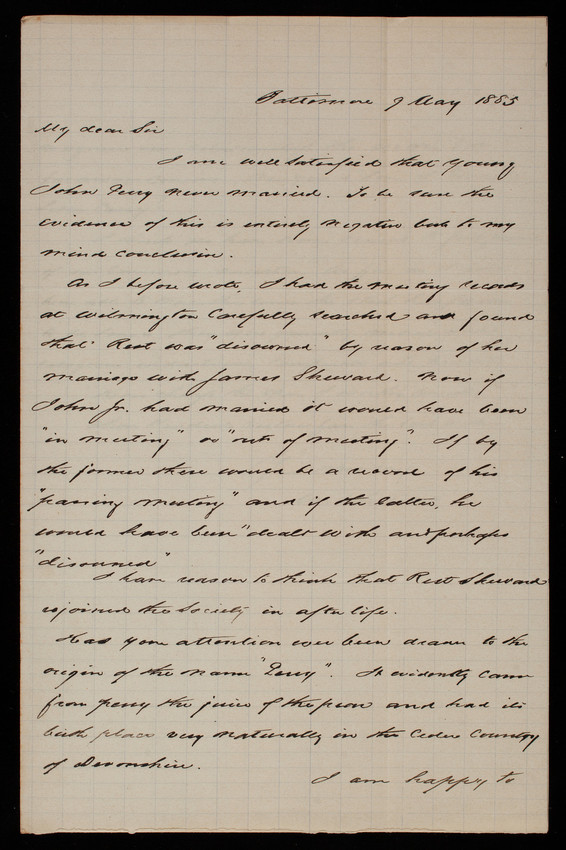 Baltimore 9 May 1885
My dear Sir
I am well satisfied that Young
John Perry never married. To be sure the
evidence of this is entirely negative but to my
mind conclusive.
As I before wrote, I had the meeting records
at Wilmington Carefully searched and found
that Rest was "disowned" by reason of her
marriage with James Sheward. Now if
John Jr. had married it would have been
"in meeting" or "out of meeting". If by
the former there would be a record of his
"passing meeting" and if the latter, he
would have been "dealt with and perhaps
"disowned"
I have reason to think that Rest Sheward
rejoined the Society in after life.
Has your attention ever been drawn to the
origin of the name "Perry". It evidently came
from perry the juice of the pear and had its
birth place very naturally in the Cider Country
of Devonshire.
I am happy to